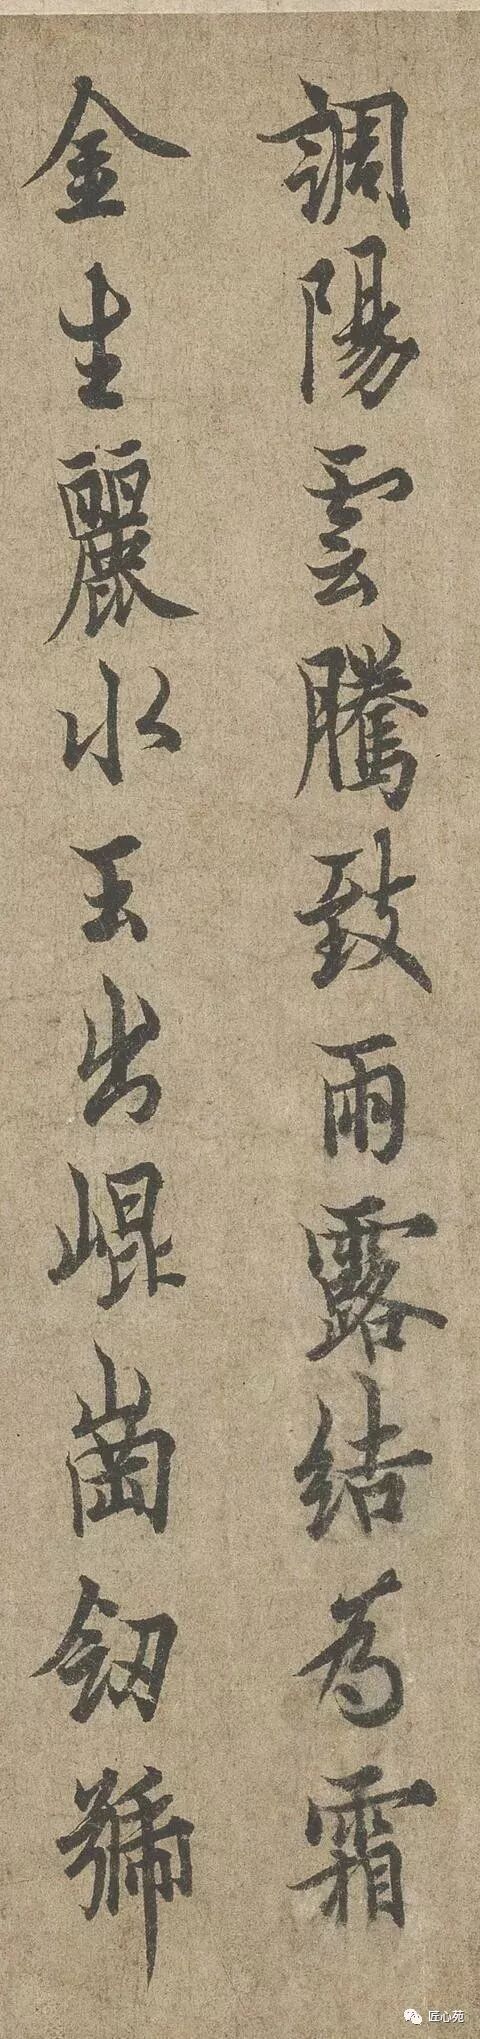 調陽雲騰致雨露結為霜
金生麗水玉出崐崗釰號
匠心苑